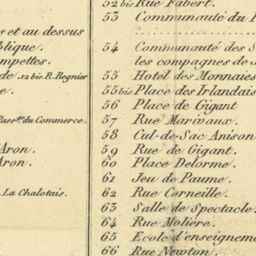 52 bis Rue Fabert.
53 Communauté du
54 Communauté des
les compagnes de
55 Hotel des Monnaies
55 bis Place des Irlandais
56 Place de Gigant
57 Rue Marivaux.
58 Cul-de-Sac Anison
59 Rue de Gigant.
60 Place Delorme.
61 Jeu de Paume.
62 Rue Corneille.
63 Salle de Spectacle.
64 Rue Molière.
65 Ecole d'enseignem
66 Rue Newton.
s et au dessus
blique.
mpettes.
de bis R. Regnier
e.
Pass.e du Commerce.
Aron.
Aron.
La Chalotais.